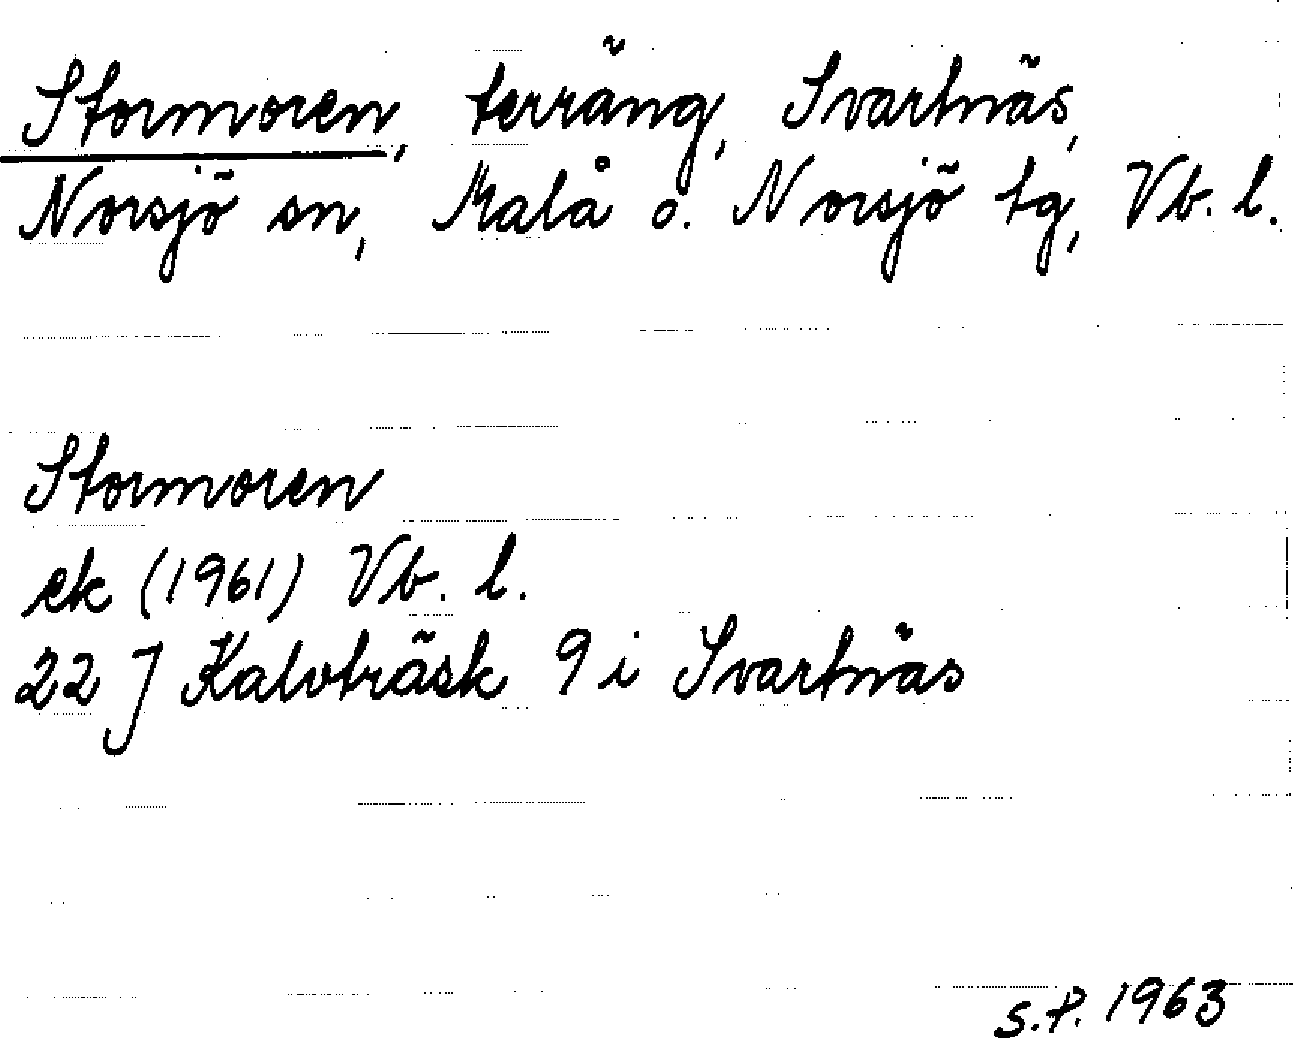 Stormoren, terräng, Svartnäs,
Norsjö sn, Malå o. Norsjö tg, Vb. l.
Stormoren
ek (1961) Vb. l.
22 J Kalvträsk 9 i Svartnäs
S.P. 1963